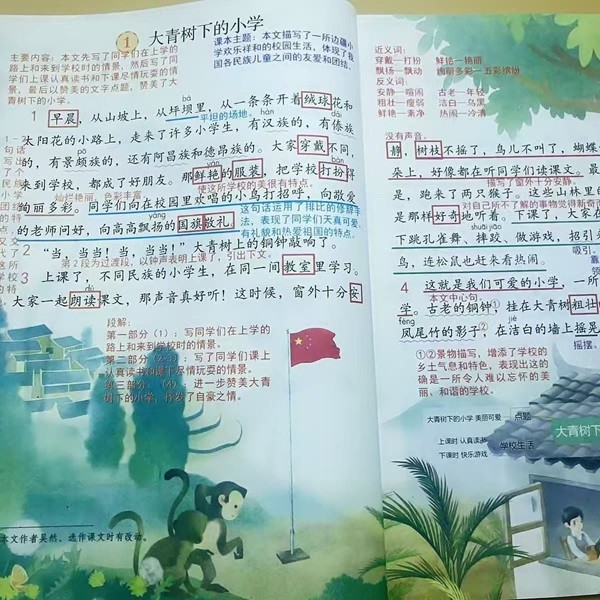 1 大青树下的小学
课本主题：本文描写了一所边疆小
学欢乐祥和的校园生活，体现了我
国各民族儿童之间的友爱和团结。
主要内容：本文先写了同学们在上学的
路上和来到学校时的情景，然后写了同
学们上课认真读书和下课尽情玩耍的情
景，最后以赞美的文字点题，赞美了大
青树下的小学。
bà
1 早晨，从山坡上，从坪坝里，从一条条开着绒球花和
平坦的场地。 tài
太阳花的小路上，走来了许多小学生，有汉族的，有傣族
的，有景颇族的，还有阿昌族和德昂族的。大家穿戴不同，
来到学校，都成了好朋友。那鲜艳的服装，把学校打扮得
灿烂艳丽，色彩丰富。 使这所学校的美很有特点。
绚丽多彩。同学们向在校园里欢唱的小鸟打招呼，向敬爱
yáng
的老师问好，向高高飘扬的国旗敬礼。
这句话运用了排比的修辞手
法，表现了同学们天真可爱、
有礼貌和热爱祖国的特点。
2 “当，当当！当，当当！”大青树上的铜钟敲响了。
第2段为过渡段，以钟声表明上课了，引出下文。
3 上课了，不同民族的小学生，在同一间教室里学习。
大家一起朗读课文，那声音真好听！这时候，窗外十分安
段解：
第一部分（1）：写同学们在上学的
路上和来到学校时的情景。
第二部分（2-3）：写了同学们课上
认真读书和课下尽情玩耍的情景。
第三部分（4）：进一步赞美大青
树下的小学，抒发了自豪之情。
本文作者吴然，选作课文时有改动。
近义词：
穿戴—打扮 鲜艳—艳丽
飘扬—飘动 绚丽多彩—五彩缤纷
反义词：
安静—喧闹 古老—年轻
粗壮—瘦弱 洁白—乌黑
鲜艳—素净 热闹—冷清
没有声音。
静，树枝不摇了，鸟儿不叫了，蝴蝶
朵上，好像都在听同学们读课文。最
描写了窗外十分安静。
是，跑来了两只猴子。这些山林里的
对自己所不了解的事物觉得新奇
是那样好奇地听着。下课了，大家在
shuāi jiāo
下跳孔雀舞、摔跤、做游戏，招引来
吸引。
鸟，连松鼠也赶来看热闹。
4 这就是我们可爱的小学，一所
本文中心句。
学。古老的铜钟①，挂在大青树粗壮
fèng jié
凤尾竹的影子②，在洁白的墙上摇晃
摇摆。
①②景物描写，增添了学校的
乡土气息和特色，表现出这的
确是一所令人难以忘怀的美
丽、和谐的学校。
大青树下的小学 美丽可爱 点题
上课时 认真读书
学校生活
下课时 快乐游戏
大青树下